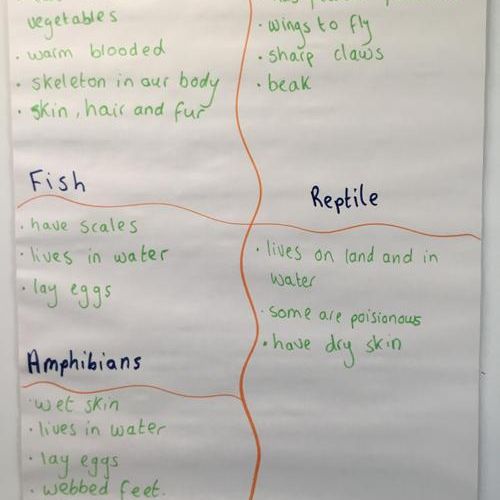 vegetables
· warm blooded
· skeleton in our body
· skin, hair and fur
· wings to fly
· sharp claws
· beak
Fish
· have scales
· lives in water
· lay eggs
Reptile
· lives on land and in
water
· some are poisionous
· have dry skin
Amphibians
· wet skin
· lives in water
· lay eggs
· webbed feet.